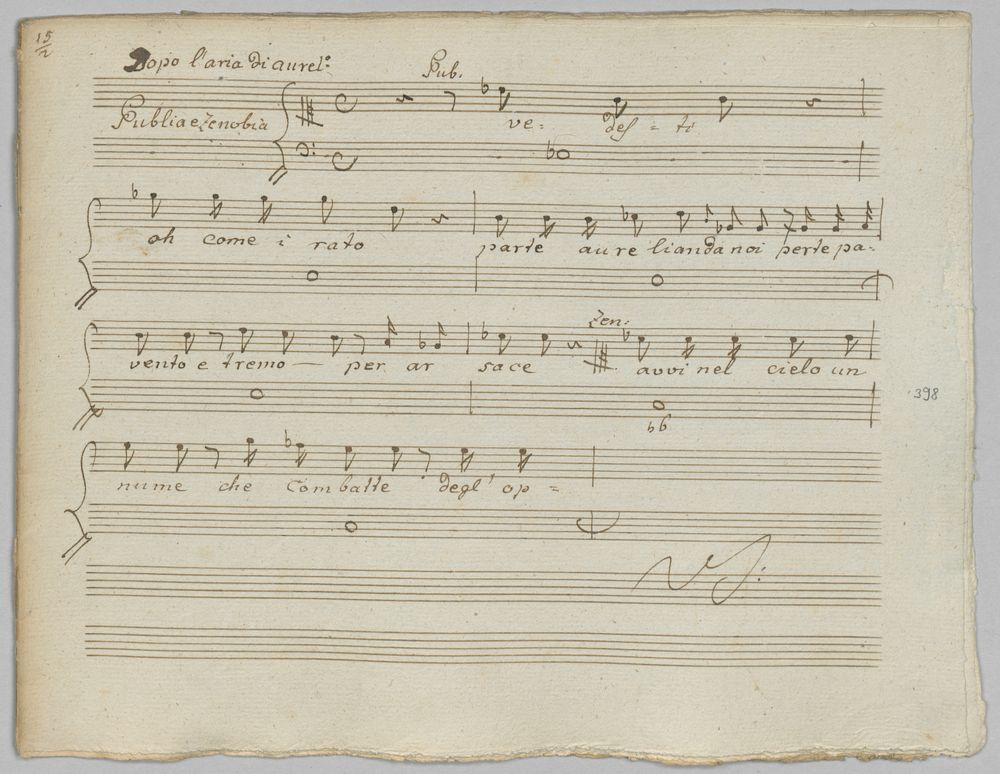 15/2
Dopo l'aria di aurel:º
Pub.
Publia e Zenobia
ve= des=ti
oh come i rato parte aurelianda noi perte pa=
Zen:
vento e tremo— per ar sace avvi nel cielo un
398
b6
nume che combatte degl' op=
VS: